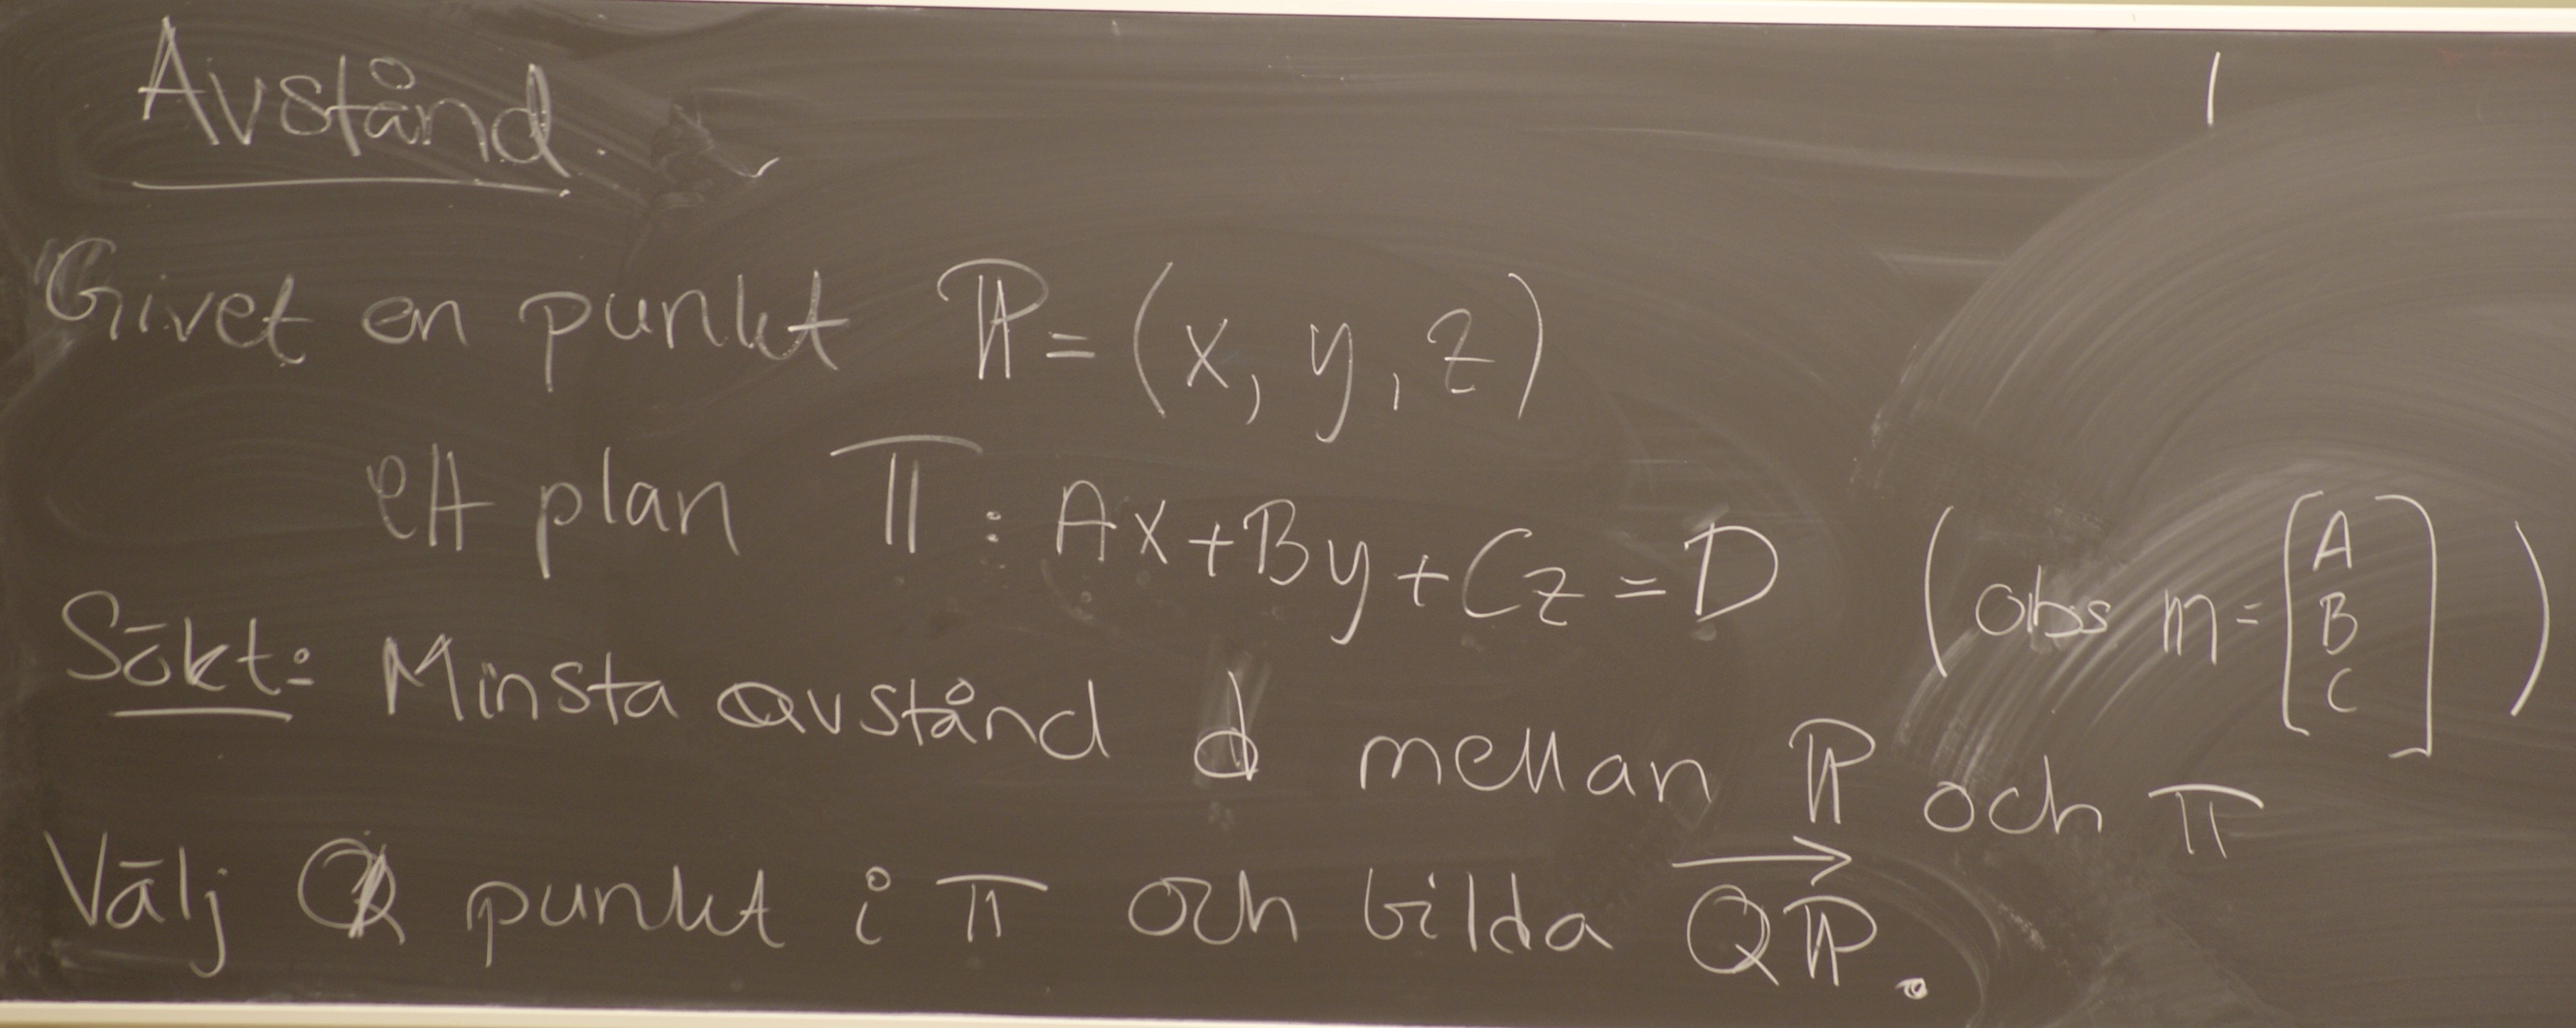 Avstånd.
Givet en punkt P = (x, y, z)
ett plan π : Ax + By + Cz = D (obs n = [A B C])
Sökt: Minsta avstånd d mellan P och π
Välj Q punkt i π och bilda QP.